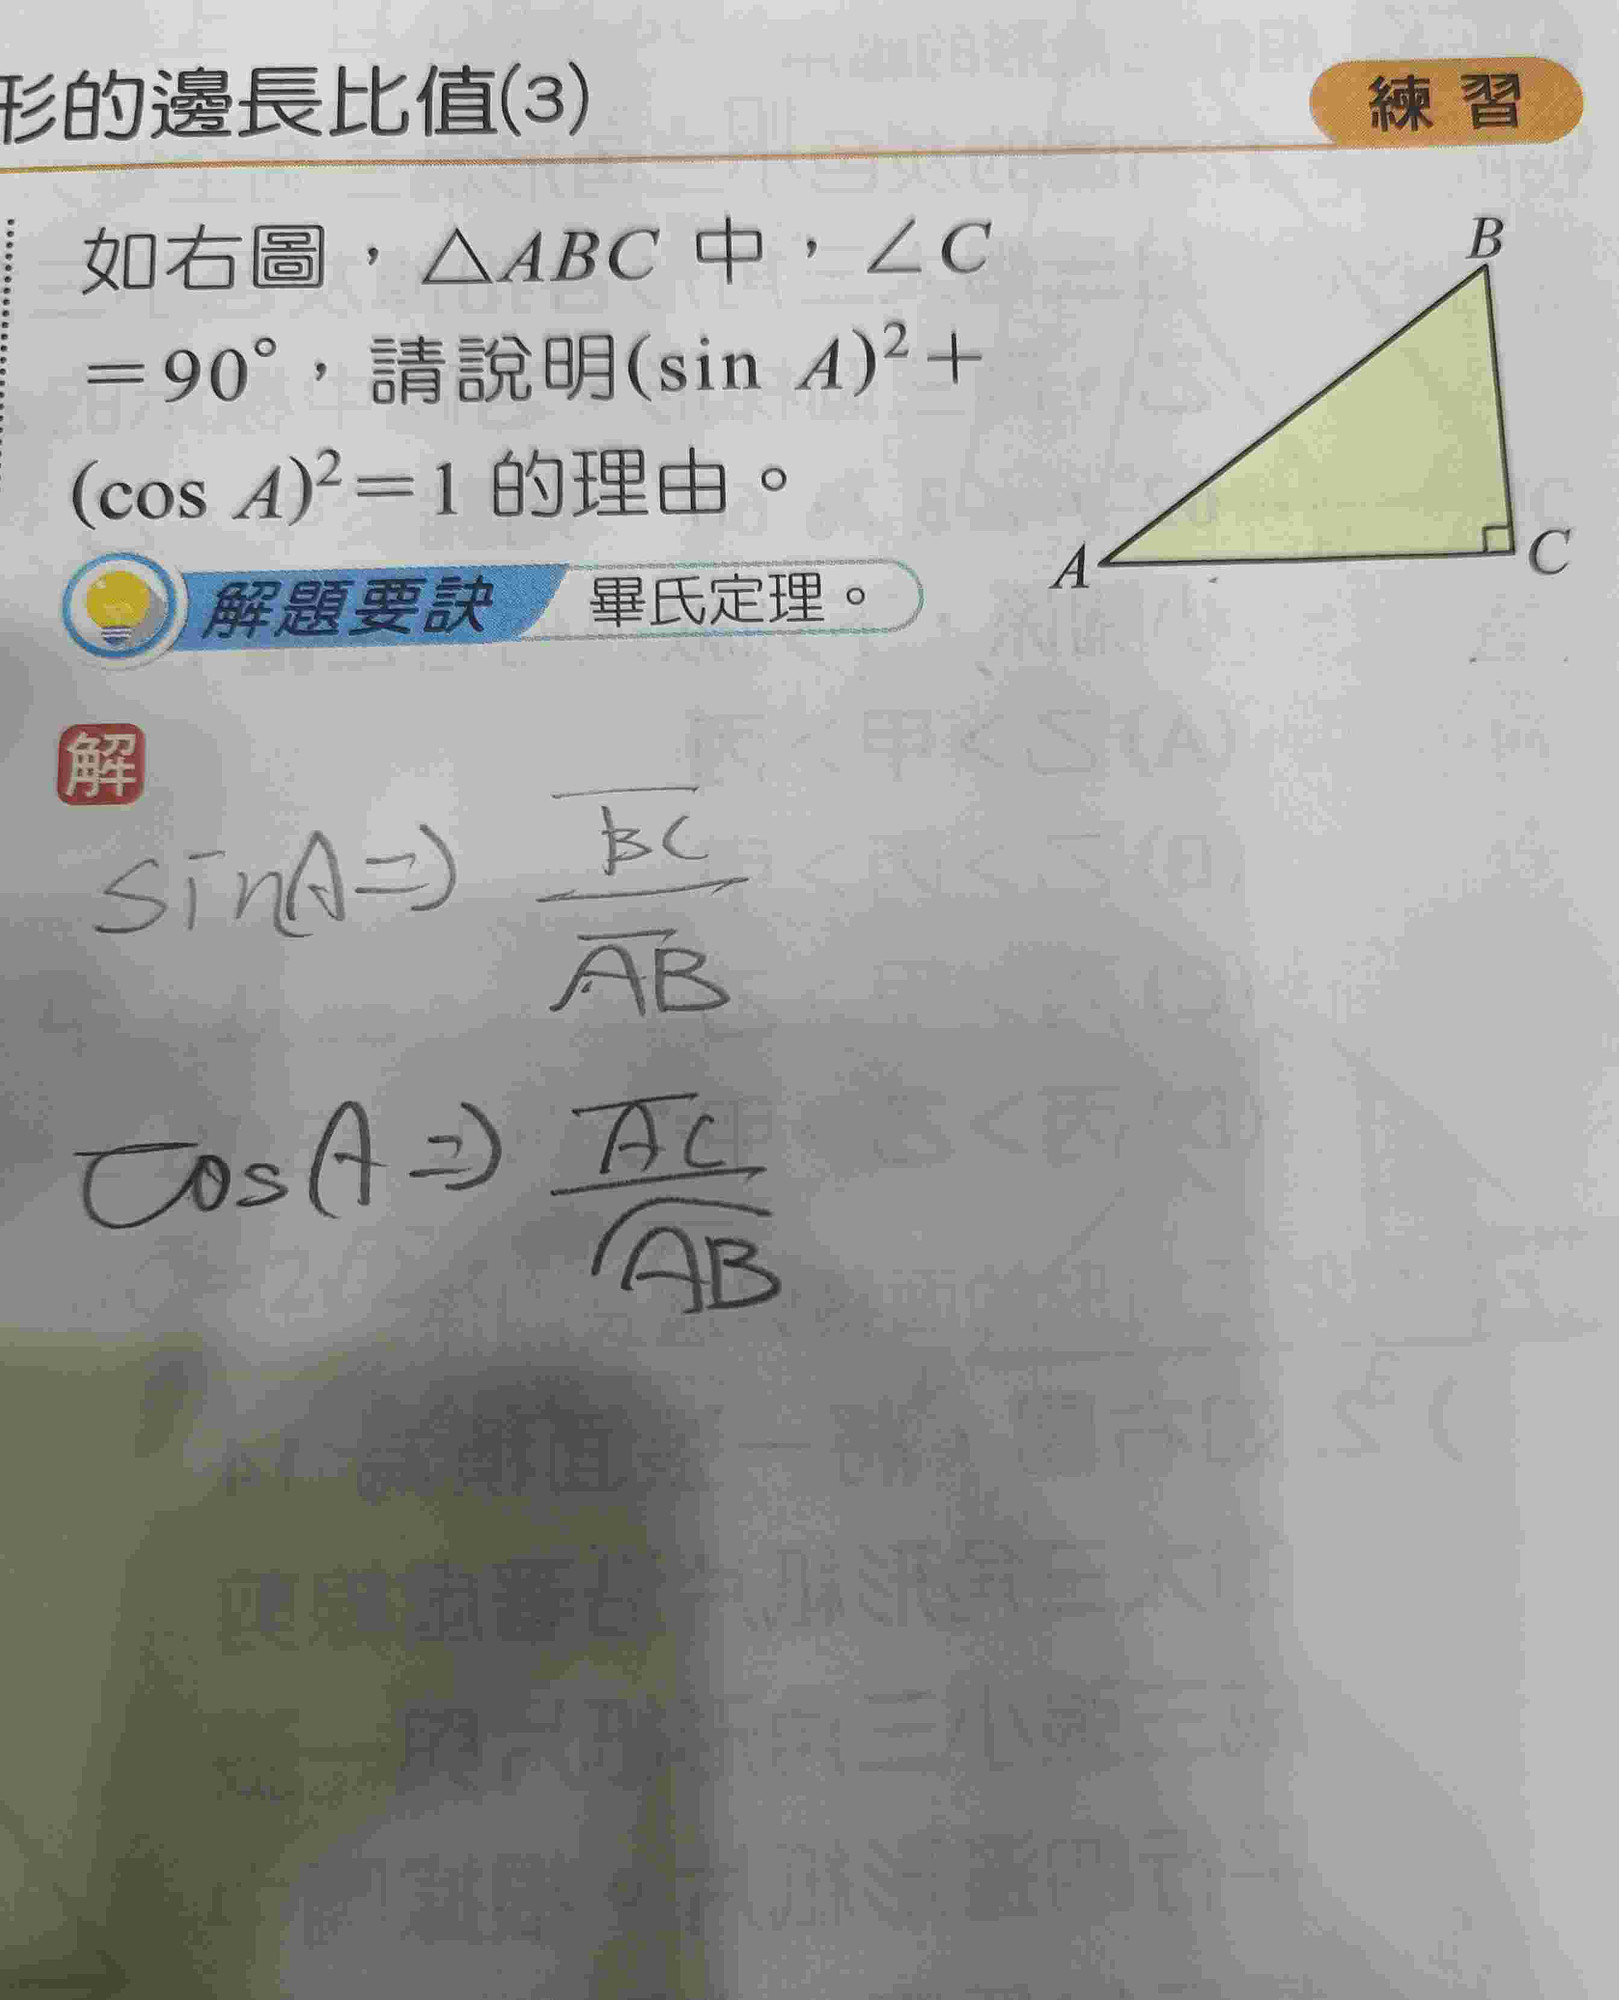 形的邊長比值(3)
練習
如右圖，△ABC 中，∠C
＝90°，請說明(sin A)²＋
(cos A)²＝1 的理由。
B
A
C
解題要訣 畢氏定理。
解
sinA⇒ \frac{\overline{BC}}{\overline{AB}}
cosA⇒ \frac{\overline{AC}}{\overline{AB}}